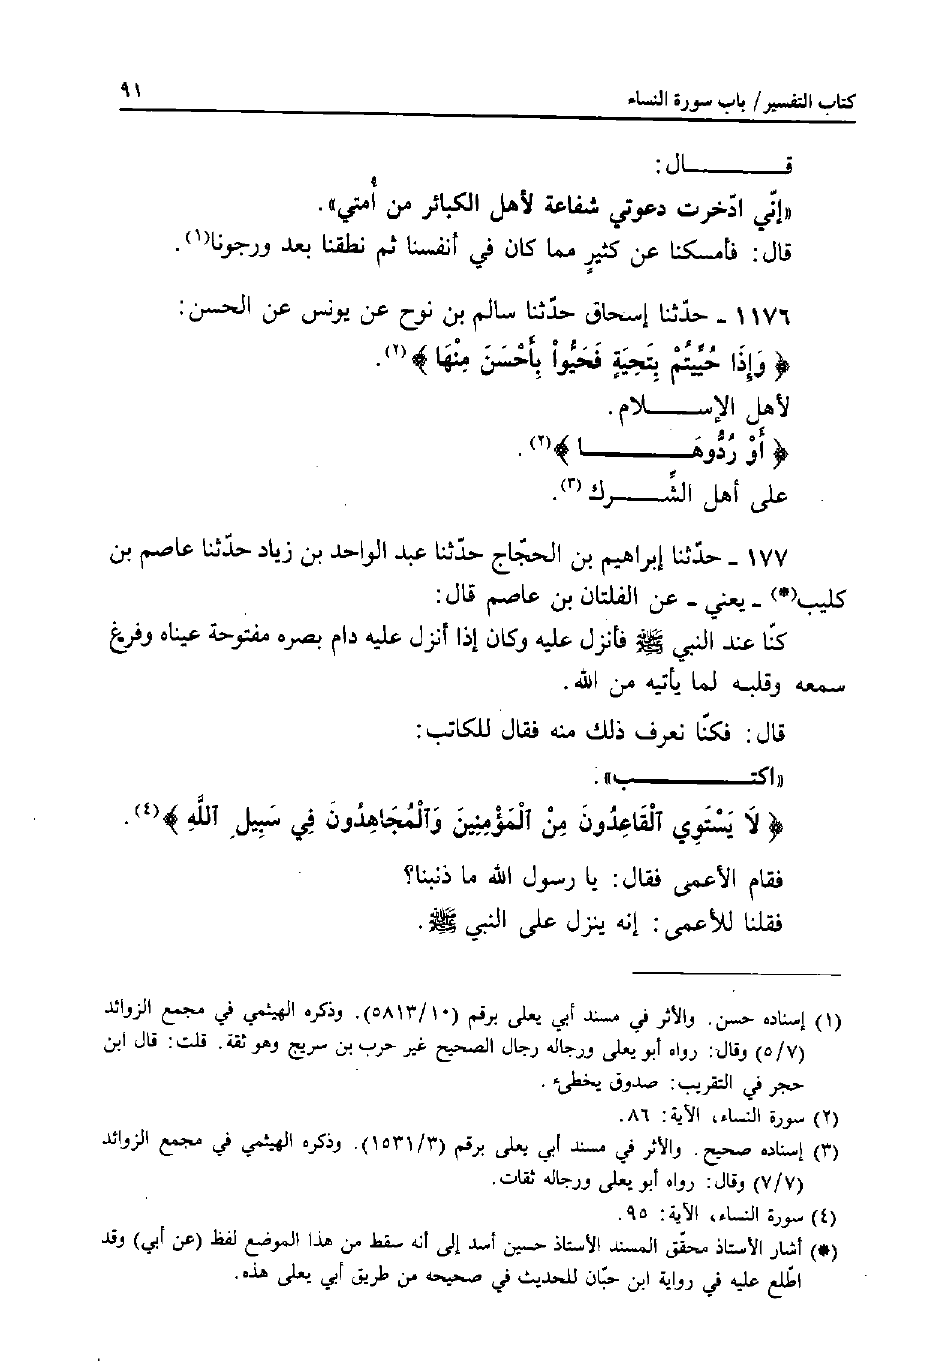 كتاب التفسير / باب سورة النساء ٩١
قـــــــال:
«إنّي ادّخرت دعوتي شفاعة لأهل الكبائر من أُمتي».
قال: فأمسكنا عن كثيرٍ مما كان في أنفسنا ثم نطقنا بعد ورجونا(١).
١١٧٦ ـ حدّثنا إسحاق حدّثنا سالم بن نوح عن يونس عن الحسن:
﴿ وَإِذَا حُيِّيتُمْ بِتَحِيَّةٍ فَحَيُّواْ بِأَحْسَنَ مِنْهَا ﴾(٢).
لأهل الإســـــلام.
﴿ أَوْ رُدُّوهَـــــــا ﴾(٢).
على أهل الشِّـــــرك(٣).
١٧٧ ـ حدّثنا إبراهيم بن الحجّاج حدّثنا عبد الواحد بن زياد حدّثنا عاصم بن
كليب(*) ـ يعني ـ عن الفلتان بن عاصم قال:
كنّا عند النبي ﷺ فأنزل عليه وكان إذا أنزل عليه دام بصره مفتوحة عيناه وفرغ
سمعه وقلبه لما يأتيه من الله.
قال: فكنّا نعرف ذلك منه فقال للكاتب:
«اكتـــــــب».
﴿ لَا يَسْتَوِي ٱلْقَاعِدُونَ مِنْ ٱلْمَؤْمِنِينَ وَٱلْمُجَاهِدُونَ فِي سَبِيلِ ٱللَّهِ ﴾(٤).
فقام الأعمى فقال: يا رسول الله ما ذنبنا؟
فقلنا للأعمى: إنه ينزل على النبي ﷺ.
(١) إسناده حسن. والأثر في مسند أبي يعلى برقم (٥٨١٣/١٠). وذكره الهيثمي في مجمع الزوائد
(٥/٧) وقال: رواه أبو يعلى ورجاله رجال الصحيح غير حرب بن سريج وهو ثقة. قلت: قال ابن
حجر في التقريب: صدوق يخطىء.
(٢) سورة النساء، الآية: ٨٦.
(٣) إسناده صحيح. والأثر في مسند أبي يعلى برقم (١٥٣١/٣). وذكره الهيثمي في مجمع الزوائد
(٧/٧) وقال: رواه أبو يعلى ورجاله ثقات.
(٤) سورة النساء، الآية: ٩٥.
(*) أشار الأستاذ محقّق المسند الأستاذ حسين أسد إلى أنه سقط من هذا الموضع لفظ (عن أبي) وقد
اطّلع عليه في رواية ابن حبّان للحديث في صحيحه من طريق أبي يعلى هذه.